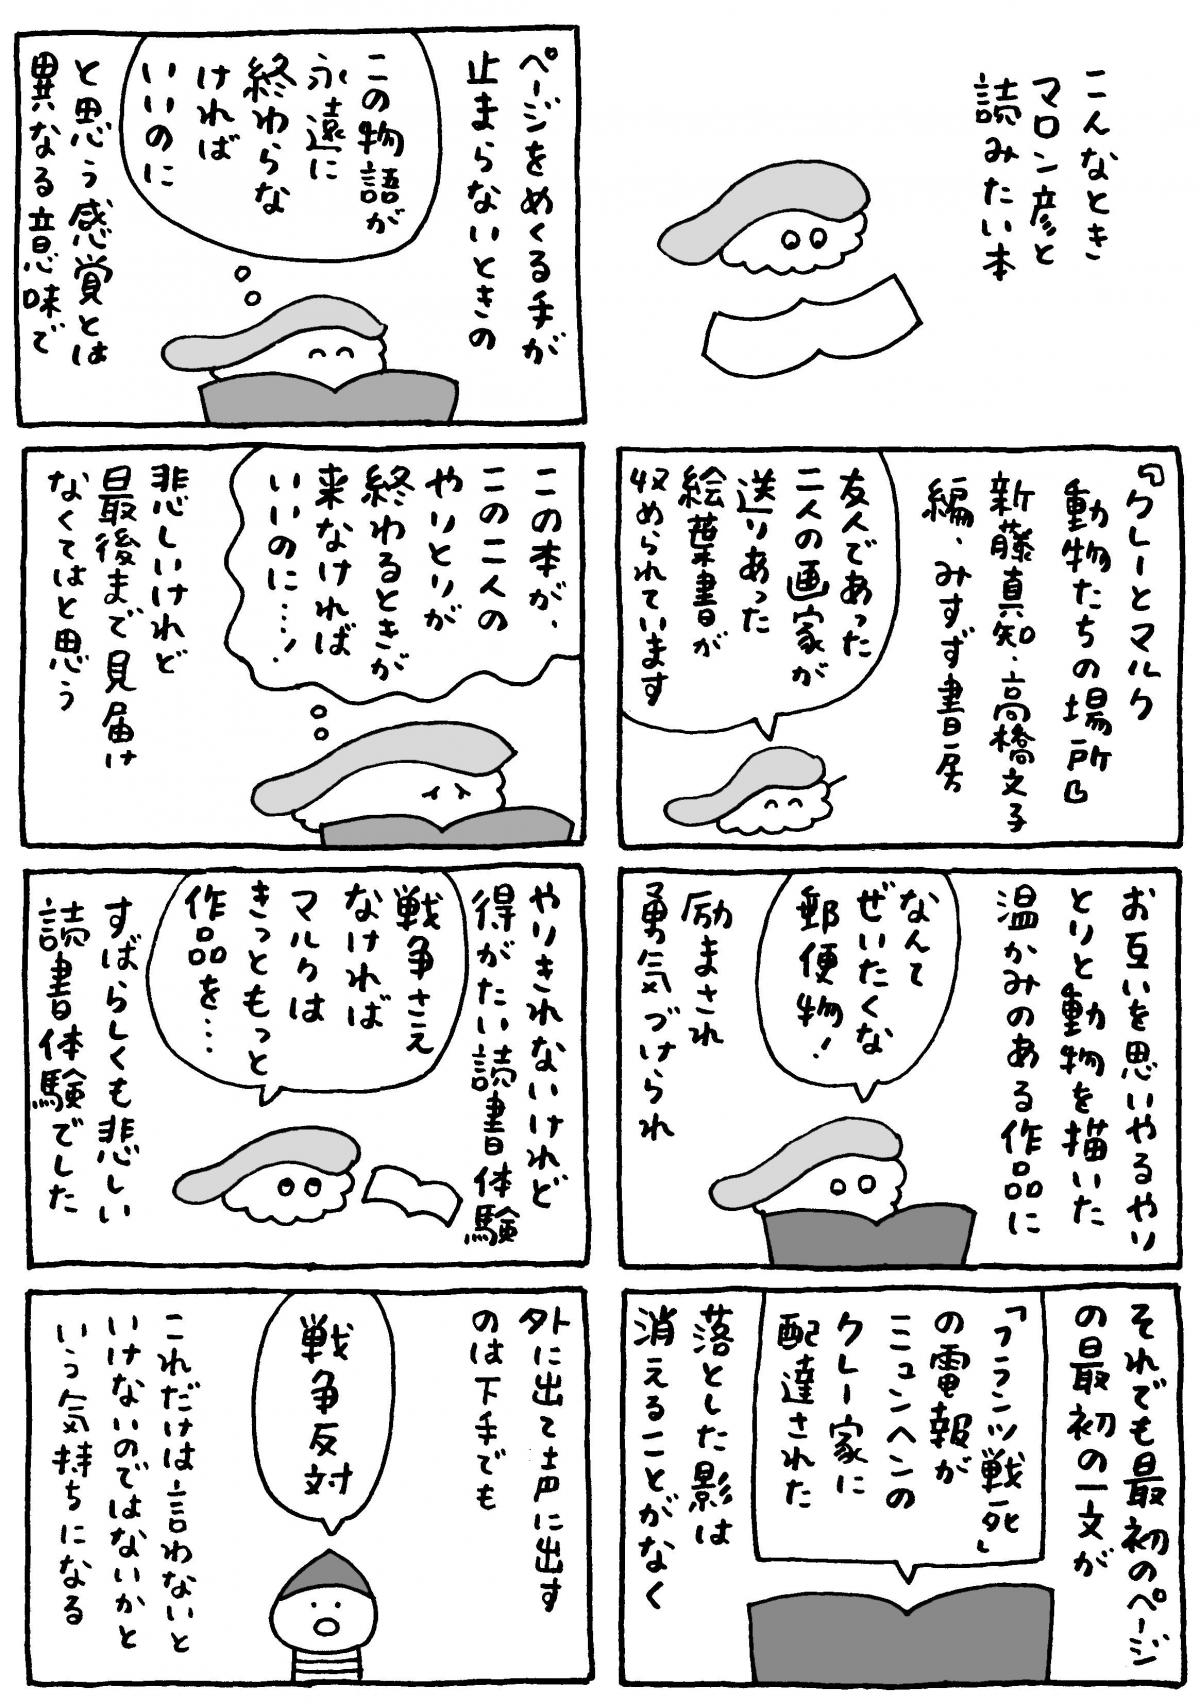 こんなとき
マロン彦と
読みたい本
『クレーとマルク
動物たちの場所』
新藤真知・高橋文子
編、みすず書房
友人であった
二人の画家が
送りあった
絵葉書が
収められています
お互いを思いやるやり
とりと動物を描いた
温かみのある作品に
なんて
ぜいたくな
郵便物!
励まされ
勇気づけられ
それでも最初のページ
の最初の一文が
「フランツ戦死」
の電報が
ミュンヘンの
クレー家に
配達された
落とした影は
消えることがなく
ページをめくる手が
止まらないときの
この物語が
永遠に
終わらな
ければ
いいのに
と思う感覚とは
異なる意味で
この本が、
この二人の
やりとりが
終わるときが
来なければ
いいのに…!
悲しいけれど
最後まで見届け
なくてはと思う
やりきれないけれど
得がたい読書体験
戦争さえ
なければ
マルクは
きっともっと
作品を…
すばらしくも悲しい
読書体験でした
外に出て声に出す
のは下手でも
戦争反対
これだけは言わないと
いけないのではないかと
いう気持ちになる